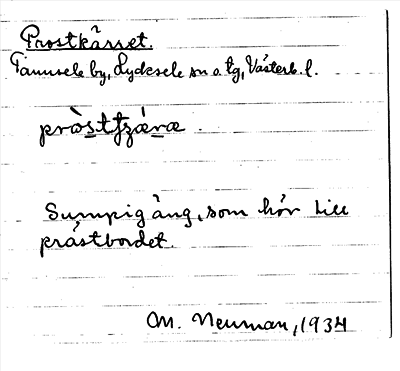 Prostkärret.
Tannsele by, Lycksele sn o. tg, Västerb. l.
pròstʃzǽræ.
Sumpig äng, som hör till
prästbordet.
M. Neuman, 1934